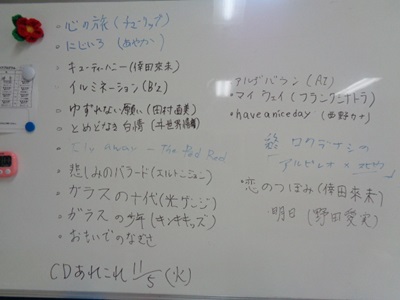 ・心の旅(チューリップ)
・にじいろ(あやか)
・キューティーハニー(倖田來未)
・イルミネーション(B'z)
・ゆずれない願い(田村直美)
・とめどなく
・悲しみのバラード(スルトニジョン)
・ガラスの十代(光ゲンジ)
・ガラスの少年(キンキキッズ)
・おもいでのなぎさ
CDあれこれ 11/5(火)
アルデバラン(AI)
・マイウェイ(フランクシナトラ)
・have a nice day(西野カナ)
ロクデナシの
・恋のつぼみ(倖田來未)
明日(野田愛実)